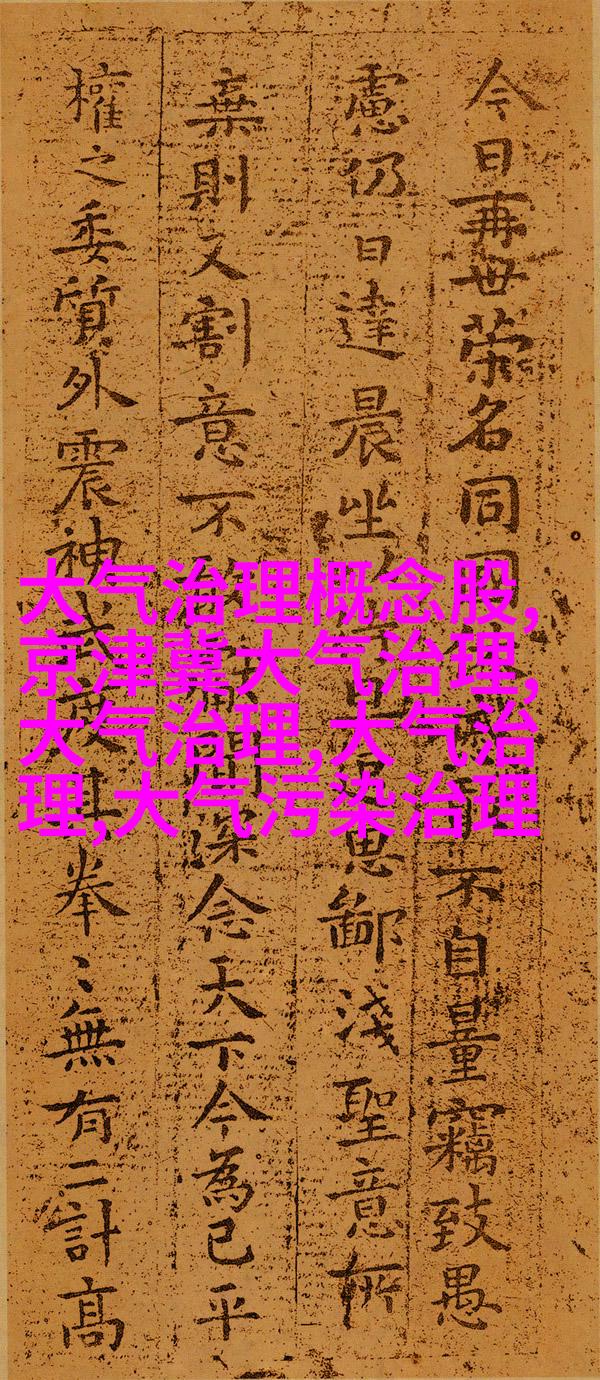 今日再世榮名同不自量竊致愚
慮仍日達晨坐思鄙淺聖意所
棄則又割意不深念天下今為已平
權之委質外震神武度其拳〻無有二計高
大气治理概念股,
京津冀大气治理,
大气治理,大气治
理,大气污染治理